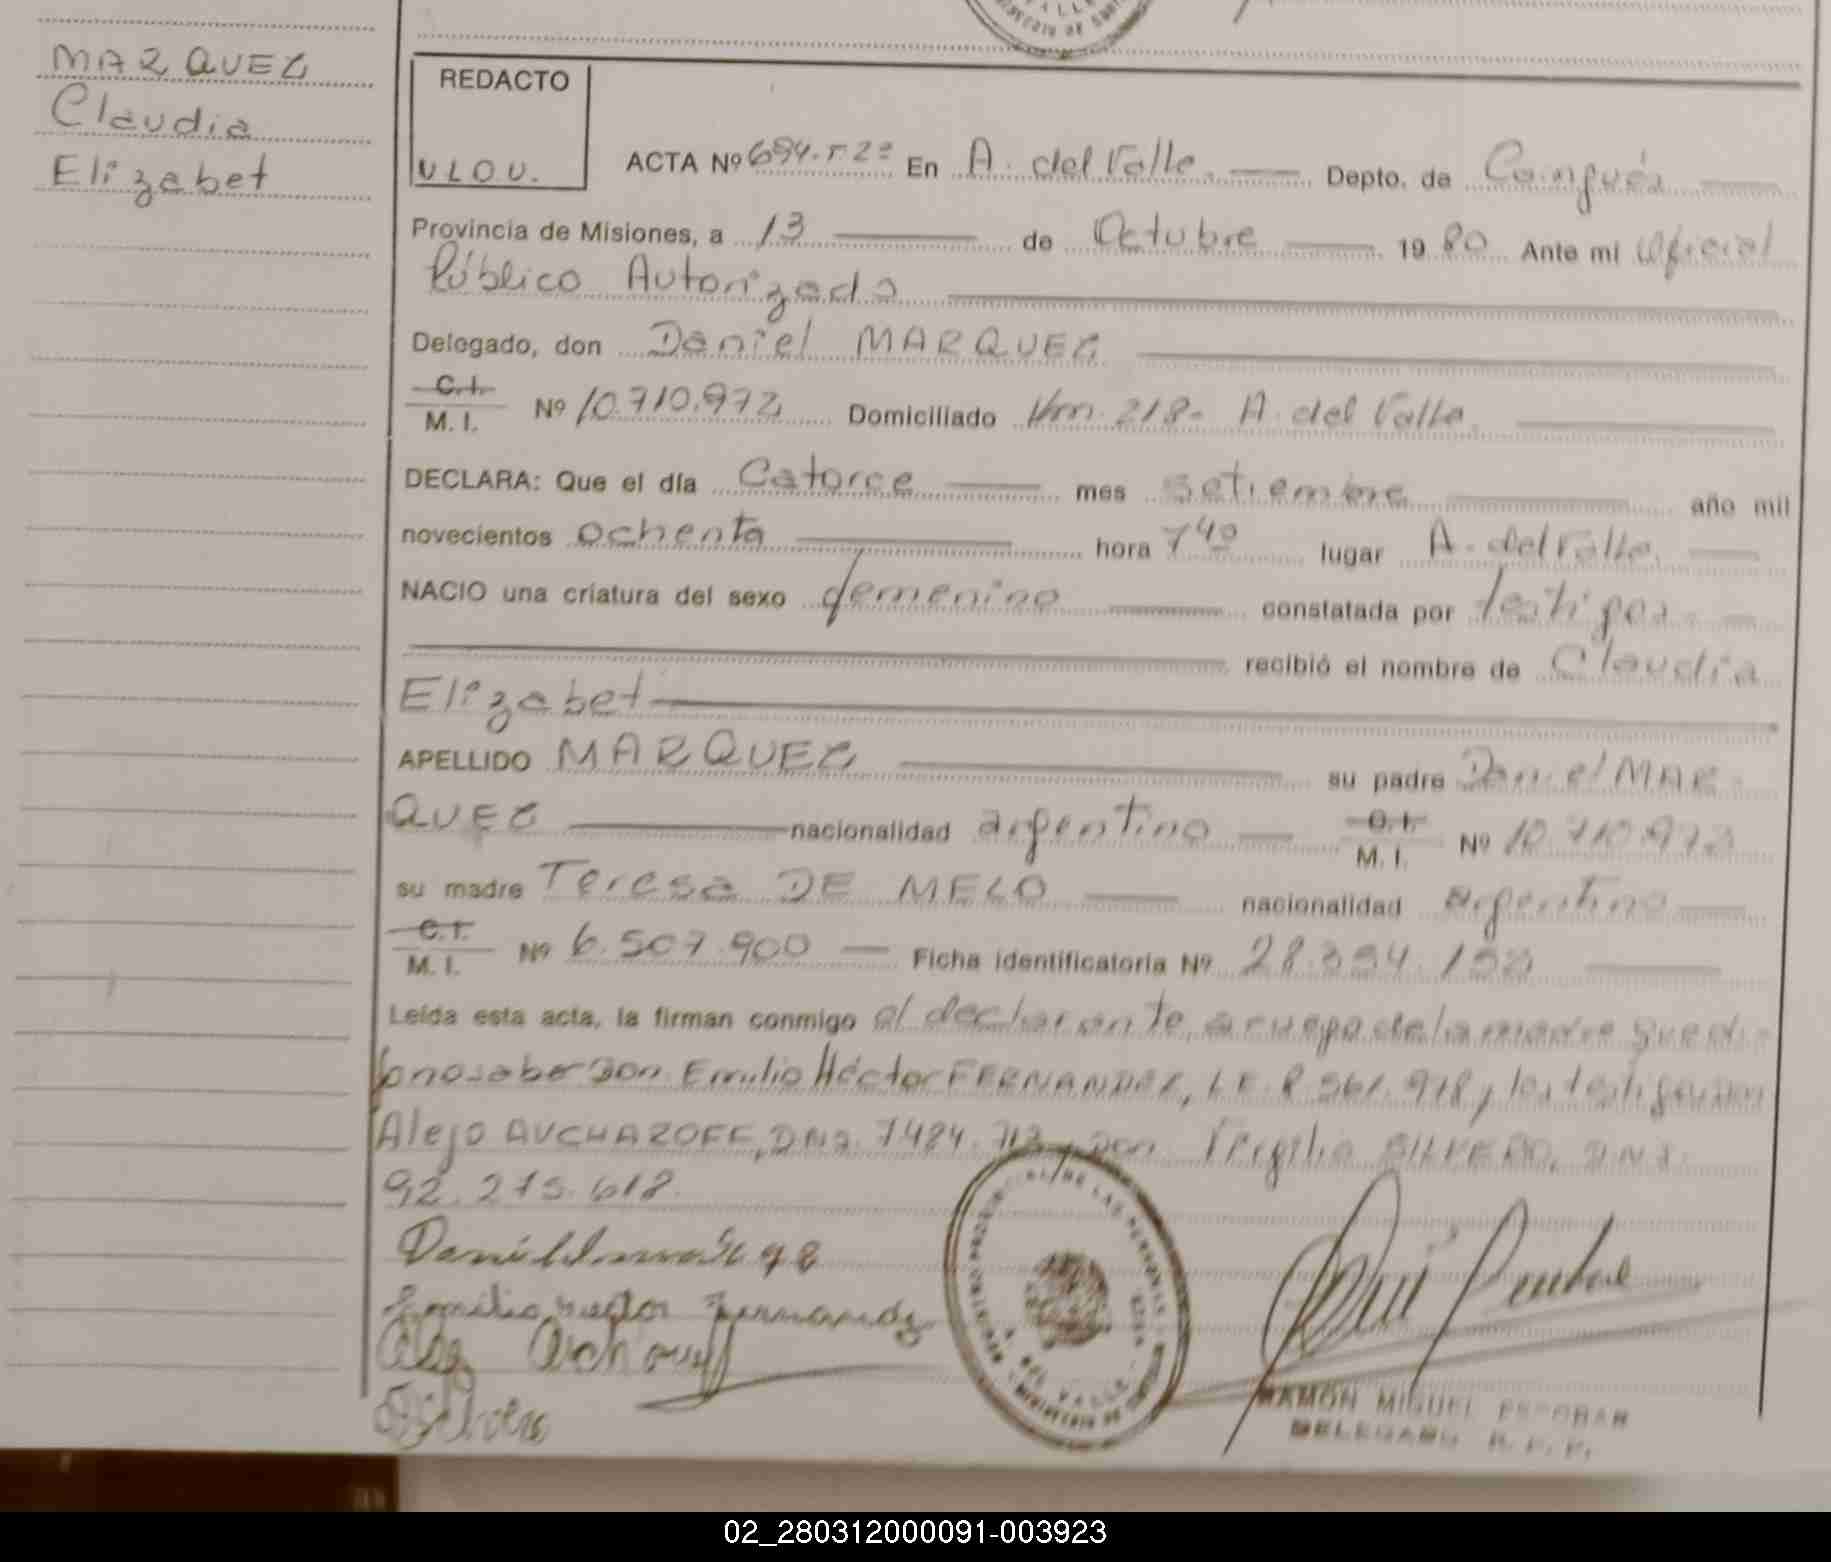 MARQUEZ
Claudia
Elizabet
REDACTO
V.L.O.V.
ACTA Nº 694.T.2º En A. del Valle. Depto. de Cainguás
Provincia de Misiones, a 13 de Octubre 19 80 Ante mi Oficial
Público Autorizado
Delegado, don Daniel MARQUEZ
C.I.
M. I. Nº 10.710.972 Domiciliado Km. 218- A. del Valle.
DECLARA: Que el día Catorce mes setiembre año mil
novecientos ochenta hora 7 40 lugar A. del Valle.
NACIO una criatura del sexo femenino constatada por testigos.
recibió el nombre de Claudia
Elizabet
APELLIDO MARQUEZ su padre Daniel MAR
QUEZ nacionalidad argentino C.I.
M. I. Nº 10.710.972
su madre Teresa DE MELO nacionalidad argentina
C.I.
M. I. Nº 6.507.900 Ficha identificatoria Nº 28.394.
Leída esta acta, la firman conmigo el declarante, a ruego de la madre que di
jo no saber Don Emilio Héctor FERNANDEZ, L.E. 8.561.918, los testigos Don
Alejo AUCHAZOFF, DNI. 7484.713, Don Virgilio SILVERO, D.N.I.
92.275.618.
Daniel
Emilio Hector Fernandez
REGISTRO PROVINCIAL DE LAS PERSONAS
A. DEL VALLE
RAMÓN MIGUEL ESCOBAR
DELEGADO R. P. P.
02_280312000091-003923